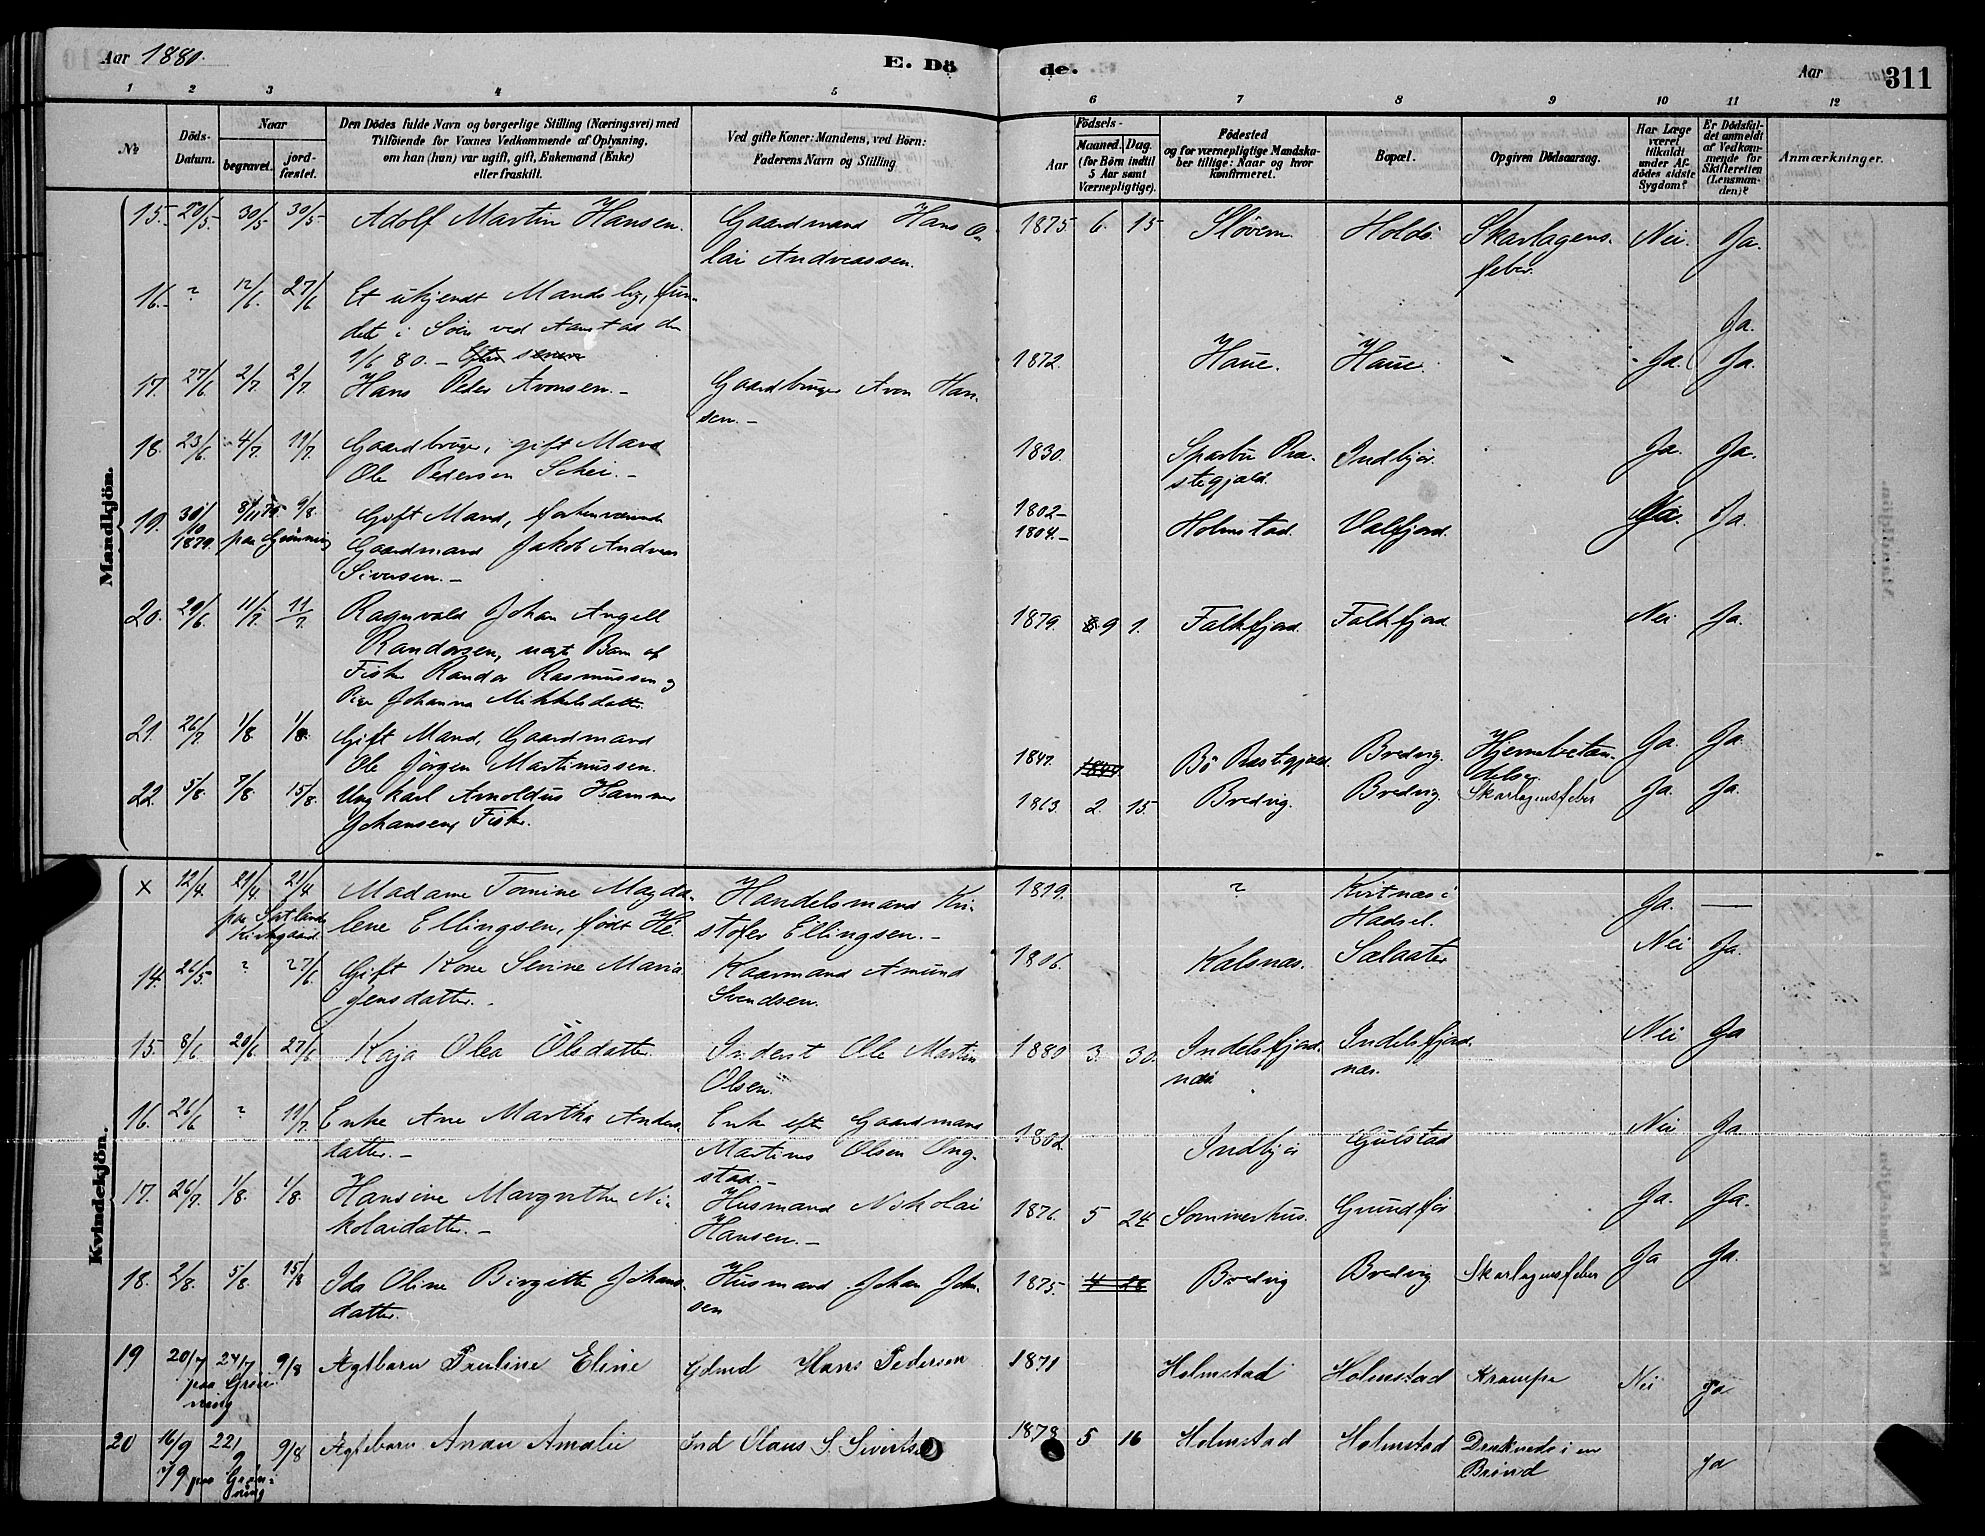 Aar 1880.
E. Dö
de.
Aar
311
1 2 3 4 5 6 7 8 9 10 11 12
No
Döds-Datum.
Naar
begravet.
jord-fæstet.
Den Dödes fulde Navn og borgerlige Stilling (Næringsvei) med
Tilföiende for Voxnes Vedkommende af Oplysning,
om han (hun) var ugift, gift, Enkemand (Enke)
eller fraskilt.
Ved gifte Koner: Mandens, ved Börn:
Faderens Navn og Stilling.
Födsels-
Aar
Maaned. Dag.
(for Börn indtil
5 Aar samt
Værnepligtige).
Födested
og for værnepligtige Mandska-
ber tillige: Naar og hvor
konfirmeret.
Bopæl.
Opgiven Dödsaarsag.
Har Læge
været
tilkaldt
under Af-
dödes sidste
Sygdom?
Er Dödsfal-
det anmeldt
af Vedkom-
mende for
Skifteretten
(Lensman-
den)?
Anmærkninger.
Mandkjön.
15. 20/5. 30/5 30/5 Adolf Martin Hansen. Gaardmand Hans O- 1875. 6. 15 Sløveren Holdö Skarlagens- Nei. Ja.
lai Andreassen. feber.
16. ? 12/6. 27/6 Et ukjendt Mandslig, fun-
det i Söen ved Aanstad den Ja.
1/6 80. -
17. 27/6. 2/7. 2/7. Hans Peder Aronsen. - Gaardbruger Aron Han- 1872. Haue. Haue. Ja. Ja.
sen. -
18. 23/6. 4/7. 11/7. Gaardbruger, gift Mand 1830. Sparbu Præ- Indbjör. Ja. Ja.
Ole Pedersen Schei. - stegjæld.
19. 30/10 1879. 8/11 79. 9/8. Gift Mand, forhenværende 1802- Holmstad. Valfjord. Ja. Ja
paa Grönning Gaardmand Jakob Andreas 1804.-
Siversen. -
20. 29/6. 11/7. 11/7. Ragnvald Johan Angell 1879. 9 1. Falkfjord. Falkfjord. Nei Ja.
Randorsen, uægte Barn af
Fisker Randor Rasmussen og
Pige Johanna Mikkelsdatter.
21. 26/7. 1/8 1/8. Gift Mand, Gaardmand 1847. Bö Præstegjæld. Bredvig. Hjernebetæn- Ja. Ja.
Ole Jörgen Martinussen. delse.
22. 5/8. 7/8 15/8. Ungkarl Arnoldus Hammer 1863. 2. 15. Bredvig. Bredvig. Skarlagensfeber Ja. Ja.
Johansen, Fisker.
Kvindekjön.
x 12/4. 21/4. 21/4 Madame Tomine Magda- Handelsmand Kri- 1819. ? Kvitnæs i Ja. —
paa Sortlands Kirkegaard lene Ellingsen, født He. stofer Ellingsen. - Hadsel.
14. 26/5. ? 27/6. Gift Kone Sevine Maria Kaarmand Amund 1806. Kalsnæs. Sælaater Nei Ja.
Jensdatter. - Svendsen.
15. 8/6 20/6. 27/6 Kaja Olea Olsdatter. Inderst Ole Martin 1880 3. 30. Indelsfjord- Indelsfjord- Nei Ja
Olsen. næs næs.
16. 26/6 ? 11/7. Enke Ane Martha Anders- Enke efter Gaardmand 1802. Indbjör Gulstad Nei Ja
datter. - Martinus Olsen Ong-
stad. -
17. 26/7. 1/8. 1/8. Hansine Margrethe Ni- Husmand Nikolai 1876. 5 24 Sommerhus. Grundför Ja. Ja.
kolaidatter. - Hansen. -
18. 2/8. 5/8. 15/8 Ida Oline Birgitte Johans- Husmand Johan Joha- 1875. 4 18 Bredvig Bredvig Skarlagensfeber Ja Ja.
datter. sen
19 20/7 24/7 9/8 Ægtbarn Pauline Eline Gdmd Hans Pedersen 1871 Holmstad Holmstad Krampe Nei Ja
paa Grön-
ning
20 16/9 22/9 9/8 Ægtebarn Anna Amalie Ind Olaus S. Sivertsen 1878 5 16 Holmstad Holmstad Druknede i en Ja
paa Grön- Brönd
ning